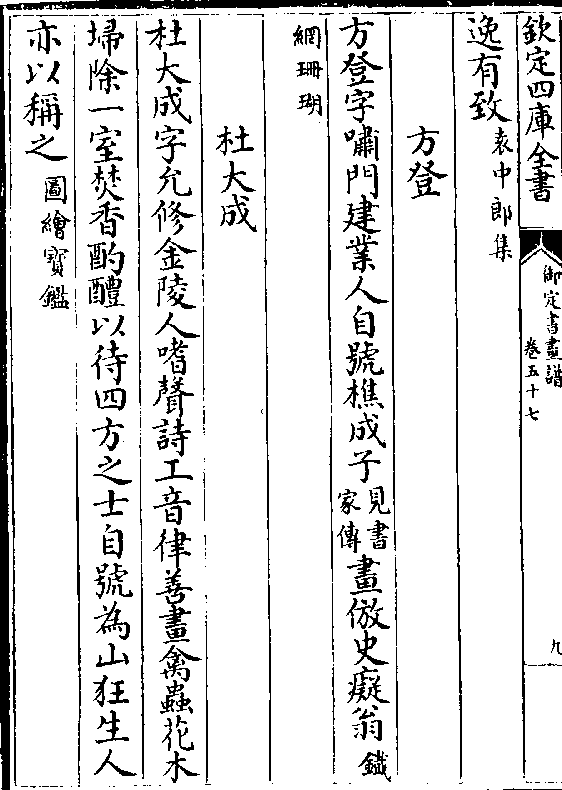 欽定四庫全書
御定書畫譜
卷五十七
九
逸有致袁中郎集
方登
方登字嘯門建業人自號樵成子見書家傳畫倣史癡翁鐵
網珊瑚
杜大成
杜大成字允修金陵人嗜聲詩工音律善畫禽蟲花木
埽除一室焚香酌醴以待四方之士自號為山狂生人
亦以稱之圖繪寶鑑